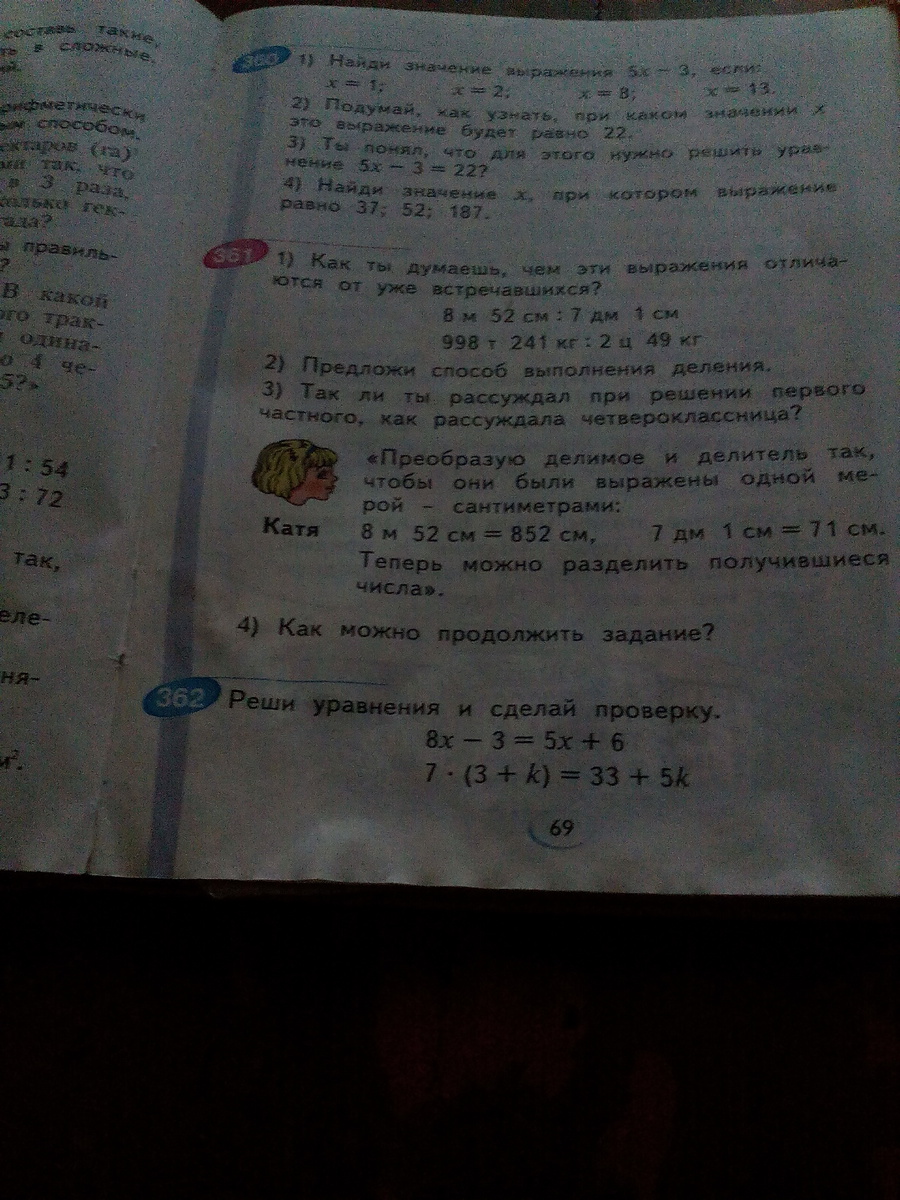 составь такие,
ть в сложные,
ий.
рифметически
ым способом.
ектаров (га)
ми так, что
в 3 раза,
колько гек-
гада?
ы правиль-
?
В какой
ого трак-
и одина-
о 4 че-
5?»
1 : 54
3 : 72
так,
еле-
ня-
м².
360 1) Найди значение выражения 5x − 3, если:
x = 1; x = 2; x = 8; x = 13.
2) Подумай, как узнать, при каком значении x
это выражение будет равно 22.
3) Ты понял, что для этого нужно решить урав-
нение 5x − 3 = 22?
4) Найди значение x, при котором выражение
равно 37; 52; 187.
361 1) Как ты думаешь, чем эти выражения отлича-
ются от уже встречавшихся?
8 м 52 см : 7 дм 1 см
998 т 241 кг : 2 ц 49 кг
2) Предложи способ выполнения деления.
3) Так ли ты рассуждал при решении первого
частного, как рассуждала четвероклассница?
«Преобразую делимое и делитель так,
чтобы они были выражены одной ме-
рой – сантиметрами:
Катя
8 м 52 см = 852 см, 7 дм 1 см = 71 см.
Теперь можно разделить получившиеся
числа».
4) Как можно продолжить задание?
362 Реши уравнения и сделай проверку.
8x − 3 = 5x + 6
7 · (3 + k) = 33 + 5k
69